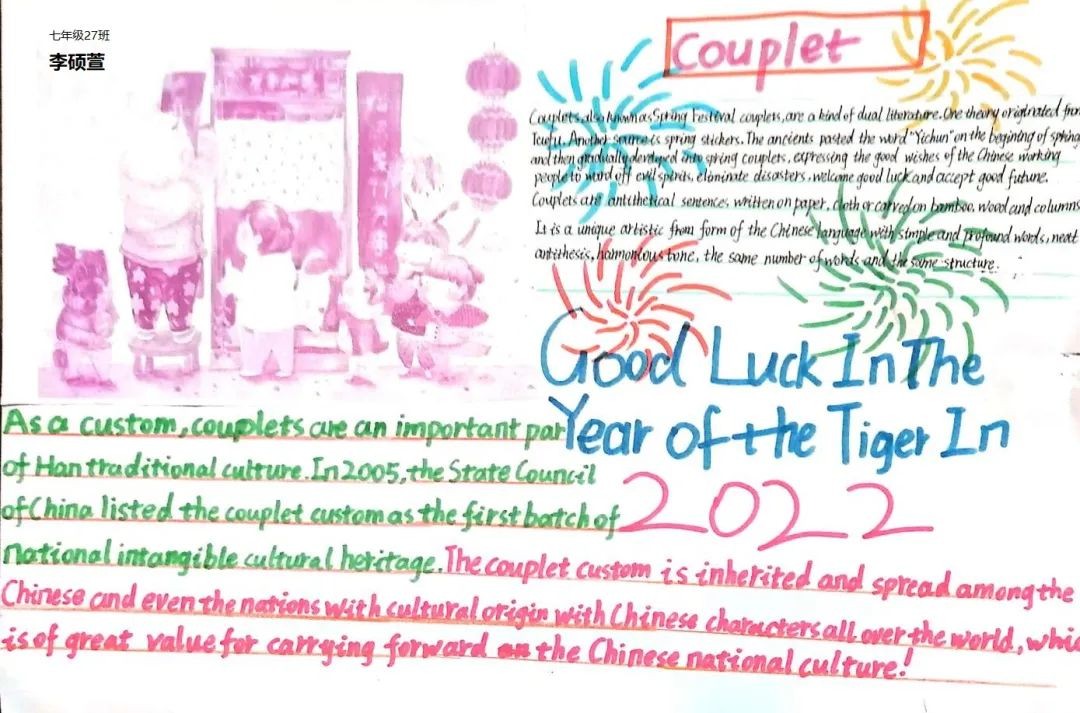 七年级27班
李硕萱
Couplet
Couplets, also known as Spring Festival couplets, are a kind of dual literature. One theory originated from
Taofu. Another source is spring stickers. The ancients pasted the word "Yichun" on the begining of spring
and then gradually developed into spring couplets, expressing the good wishes of the Chinese working
people to ward off evil spirits, eliminate disasters, welcome good luck and accept good future.
Couplets are antithetical sentences, written on paper, cloth or carved on bamboo, wood and columns
It is a unique artistic from form of the Chinese language with simple and profound words, neat
antithesis, harmonious tone, the same number of words and the same structure.
Good Luck In The
Year of the Tiger In
2022
As a custom, couplets are an important par
of Han traditional culture. In 2005, the State Council
of China listed the couplet custom as the first batch of
national intangible cultural heritage. The couplet custom is inherited and spread among the
Chinese and even the nations with cultural origin with Chinese characters all over the world, whic
is of great value for carrying forward the Chinese national culture!